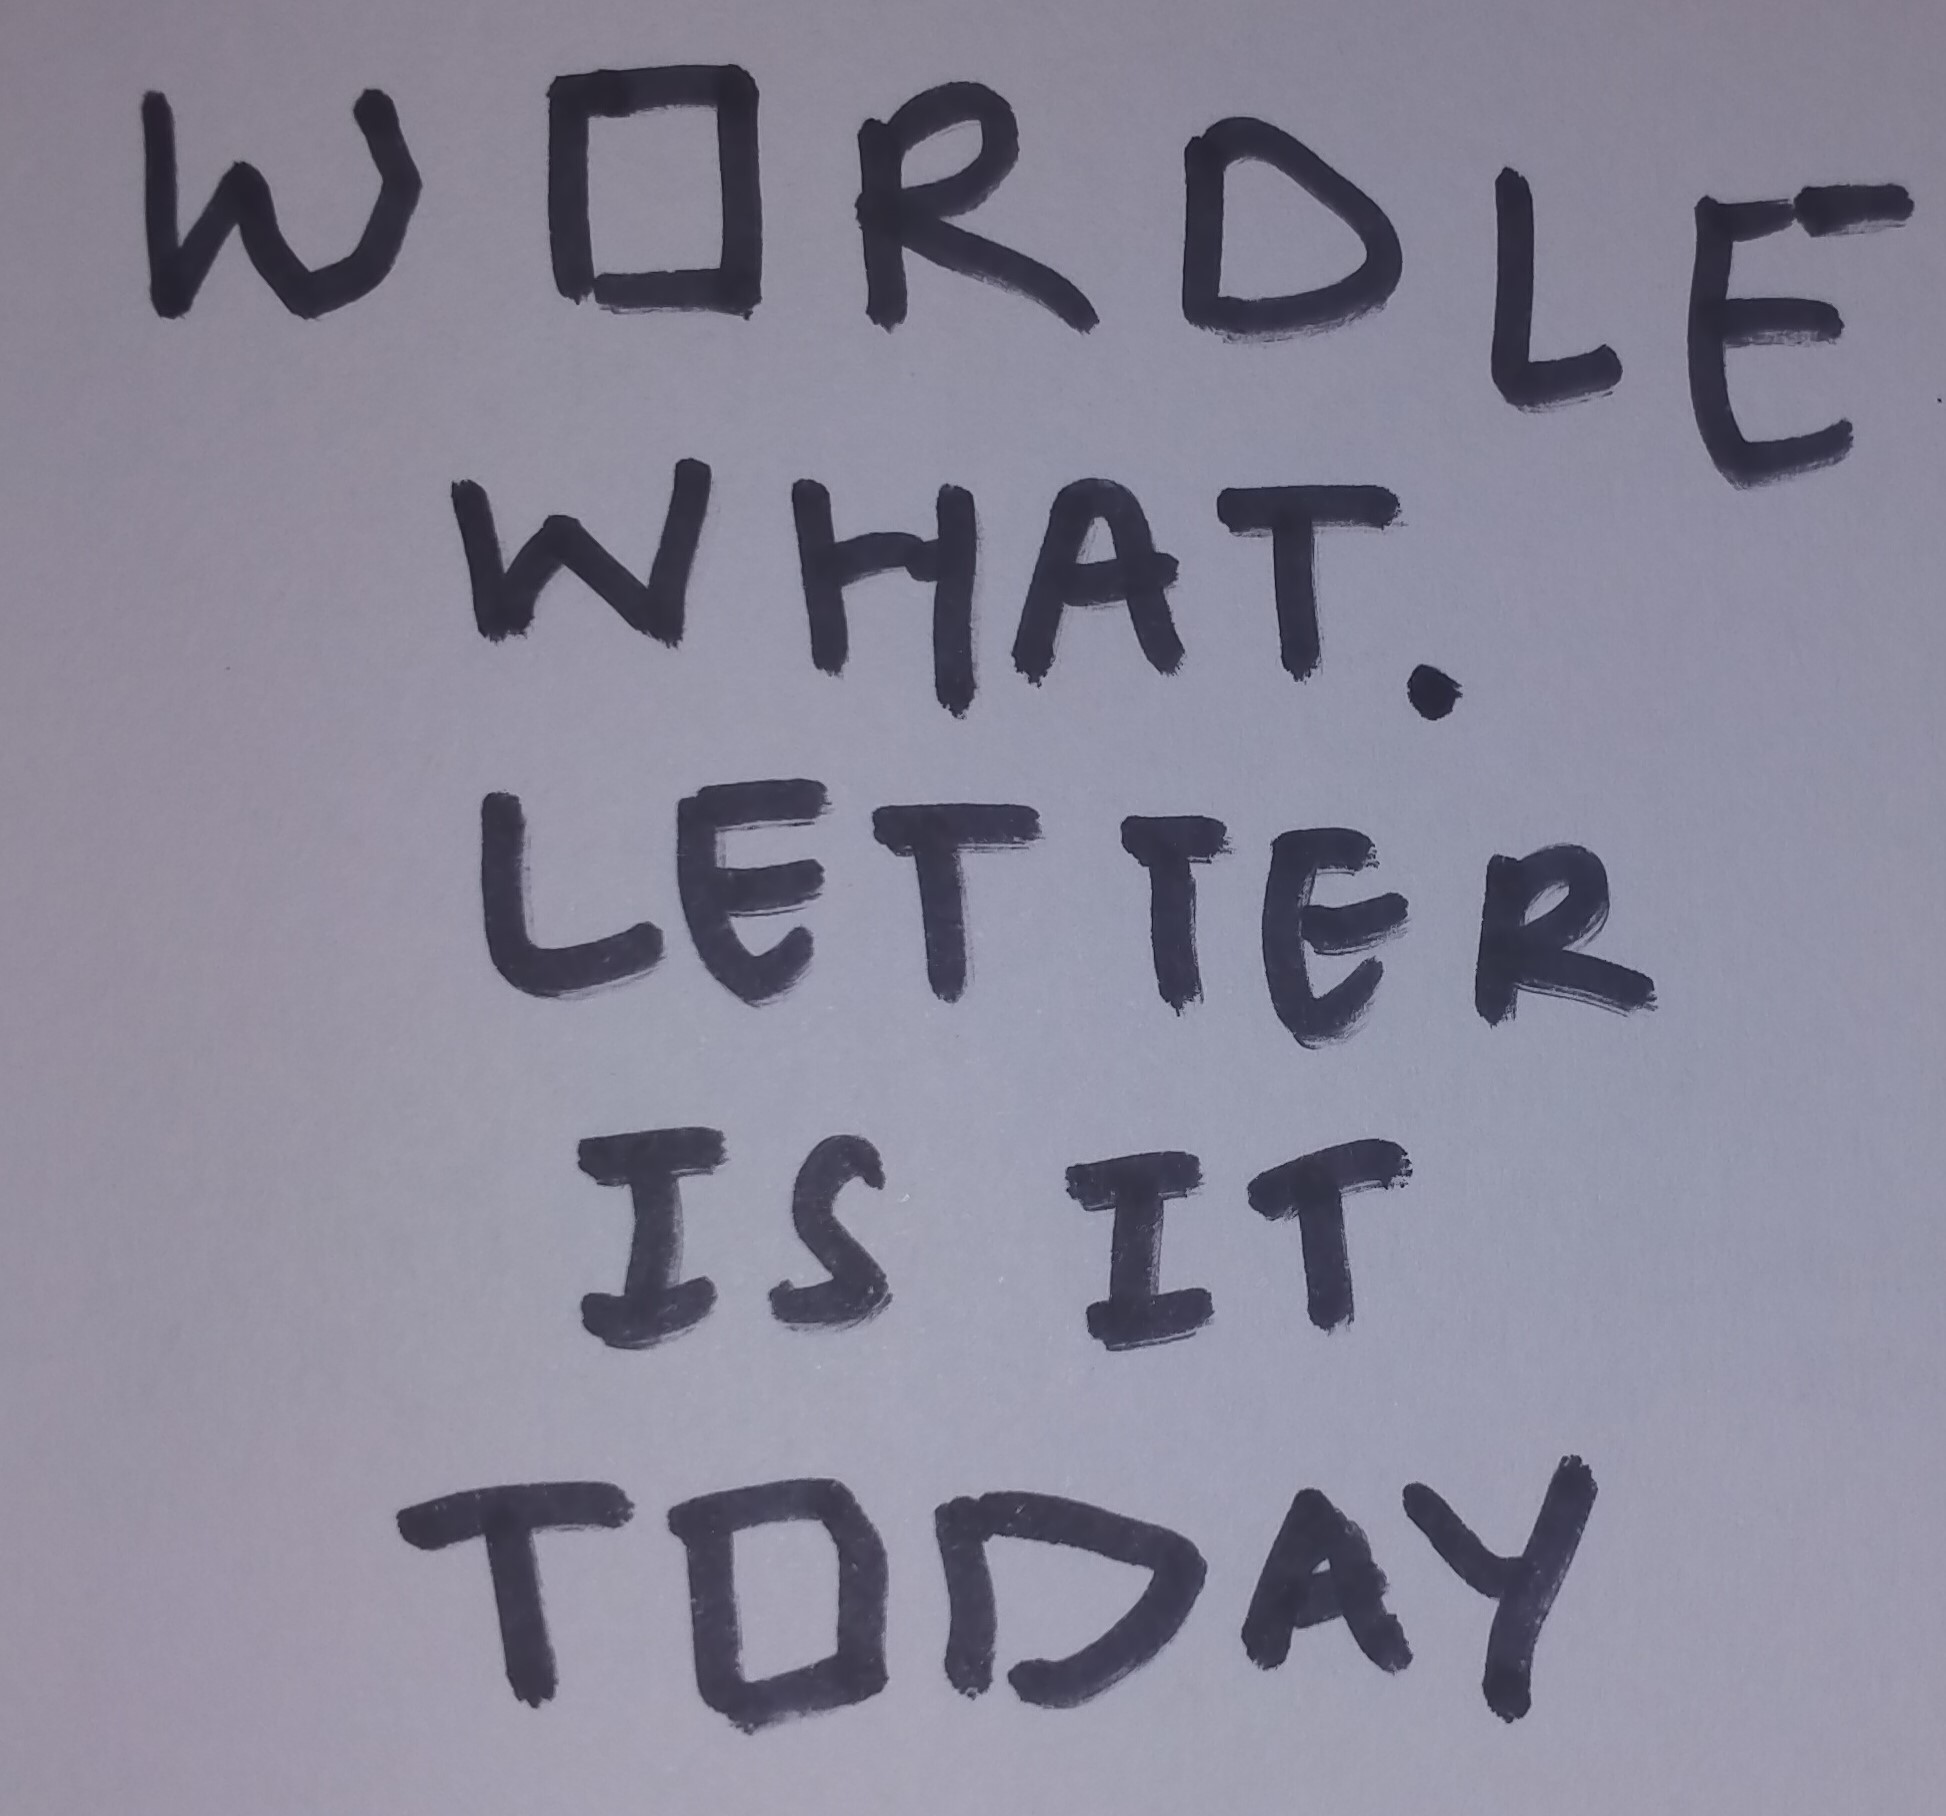 WORDLE
WHAT.
LETTER
IS IT
TODAY